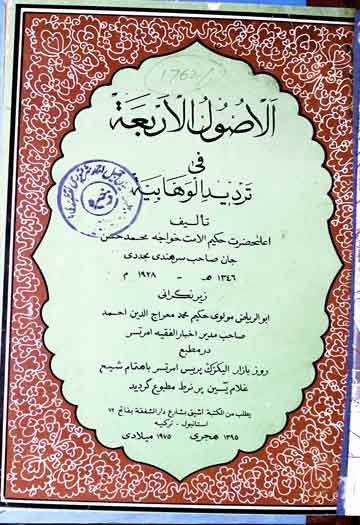 1762
الاصول الاربعة
فى
ترديد الوهابية
تأليف
اعلىحضرت حكيم الامت خواجه محمد حسن
جان صاحب سرهندى مجددى
١٣٤٦ هـ - ١٩٢٨ م
زير نگرانى
ابو الرياض مولوى حكيم محمد معراج الدين احمد
صاحب مدير اخبار الفقيه امرتسر
در مطبع
روز بازار اليكٹرک پريس امرتسر باهتمام شيخ
غلام يسين پرنٹر مطبوع گرديد
يطلب من المكتبة ايشيق بشارع دار الشفقة بفاتح ٧٢
استانبول - تركيه
١٣٩٥ هجرى ١٩٧٥ ميلادى